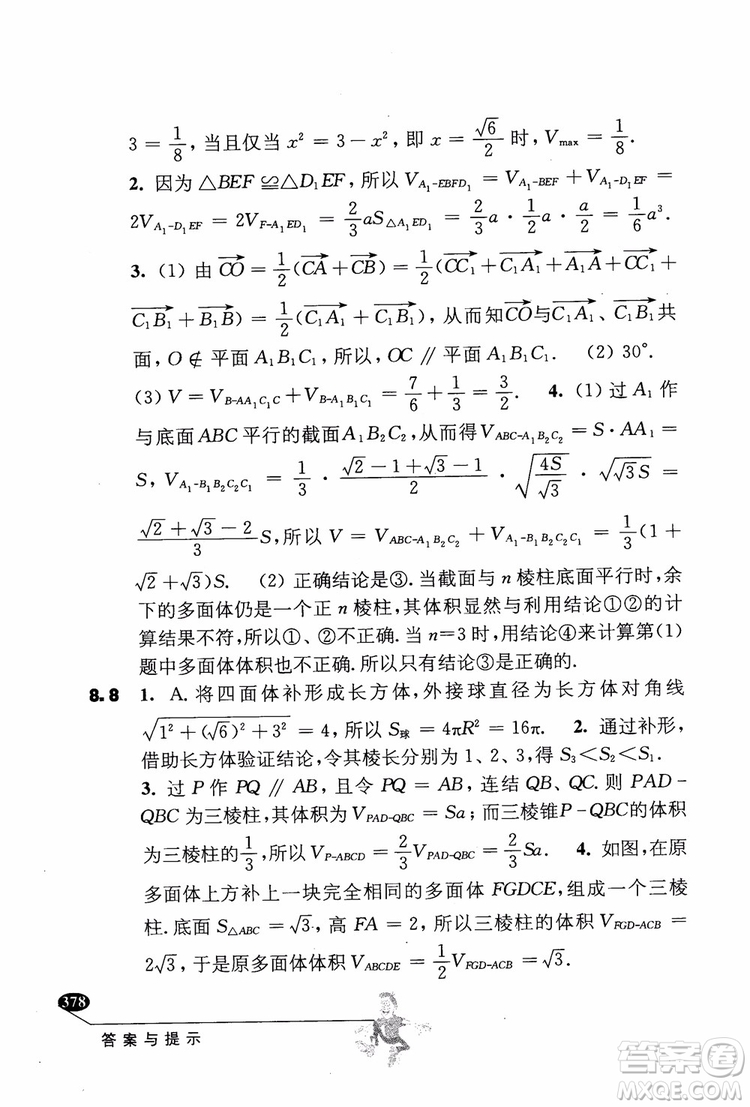 3 = 1/8, 当且仅当 x² = 3 − x², 即 x = √6/2 时, V_max = 1/8.
2. 因为 △BEF ≌ △D₁EF, 所以 V_{A₁-EBFD₁} = V_{A₁-BEF} + V_{A₁-D₁EF} =
2V_{A₁-D₁EF} = 2V_{F-A₁ED₁} = 2/3 aS_{△A₁ED₁} = 2/3 a · 1/2 a · a/2 = 1/6 a³.
3. (1) 由 \overrightarrow{CO} = 1/2(\overrightarrow{CA} + \overrightarrow{CB}) = 1/2(\overrightarrow{CC₁} + \overrightarrow{C₁A₁} + \overrightarrow{A₁A} + \overrightarrow{CC₁} +
\overrightarrow{C₁B₁} + \overrightarrow{B₁B}) = 1/2(\overrightarrow{C₁A₁} + \overrightarrow{C₁B₁}), 从而知\overrightarrow{CO}与\overrightarrow{C₁A₁}、\overrightarrow{C₁B₁}共
面, O ∉ 平面 A₁B₁C₁, 所以, OC ∥ 平面 A₁B₁C₁. (2) 30°.
(3) V = V_{B-AA₁C₁C} + V_{B-A₁B₁C₁} = 7/6 + 1/3 = 3/2. 4. (1) 过 A₁ 作
与底面 ABC 平行的截面 A₁B₂C₂, 从而得 V_{ABC-A₁B₂C₂} = S · AA₁ =
S, V_{A₁-B₁B₂C₂C₁} = 1/3 · (√2 − 1 + √3 − 1)/2 · √(4S/√3) · √(√3S) =
(√2 + √3 − 2)/3 S, 所以 V = V_{ABC-A₁B₂C₂} + V_{A₁-B₁B₂C₂C₁} = 1/3(1 +
√2 + √3)S. (2) 正确结论是③. 当截面与 n 棱柱底面平行时, 余
下的多面体仍是一个正 n 棱柱, 其体积显然与利用结论①②的计
算结果不符, 所以①、②不正确. 当 n=3 时, 用结论④来计算第(1)
题中多面体体积也不正确. 所以只有结论③是正确的.
8.8 1. A. 将四面体补形成长方体, 外接球直径为长方体对角线
√(1² + (√6)² + 3²) = 4, 所以 S_球 = 4πR² = 16π. 2. 通过补形,
借助长方体验证结论, 令其棱长分别为 1、2、3, 得 S₃ < S₂ < S₁.
3. 过 P 作 PQ ∥ AB, 且令 PQ = AB, 连结 QB、QC. 则 PAD-
QBC 为三棱柱, 其体积为 V_{PAD-QBC} = Sa; 而三棱锥P-QBC的体积
为三棱柱的 1/3, 所以 V_{P-ABCD} = 2/3 V_{PAD-QBC} = 2/3 Sa. 4. 如图, 在原
多面体上方补上一块完全相同的多面体 FGDCE, 组成一个三棱
柱. 底面 S_{△ABC} = √3, 高 FA = 2, 所以三棱柱的体积 V_{FGD-ACB} =
2√3, 于是原多面体体积 V_{ABCDE} = 1/2 V_{FGD-ACB} = √3.
378
答案与提示
答案圈
MXQE.COM